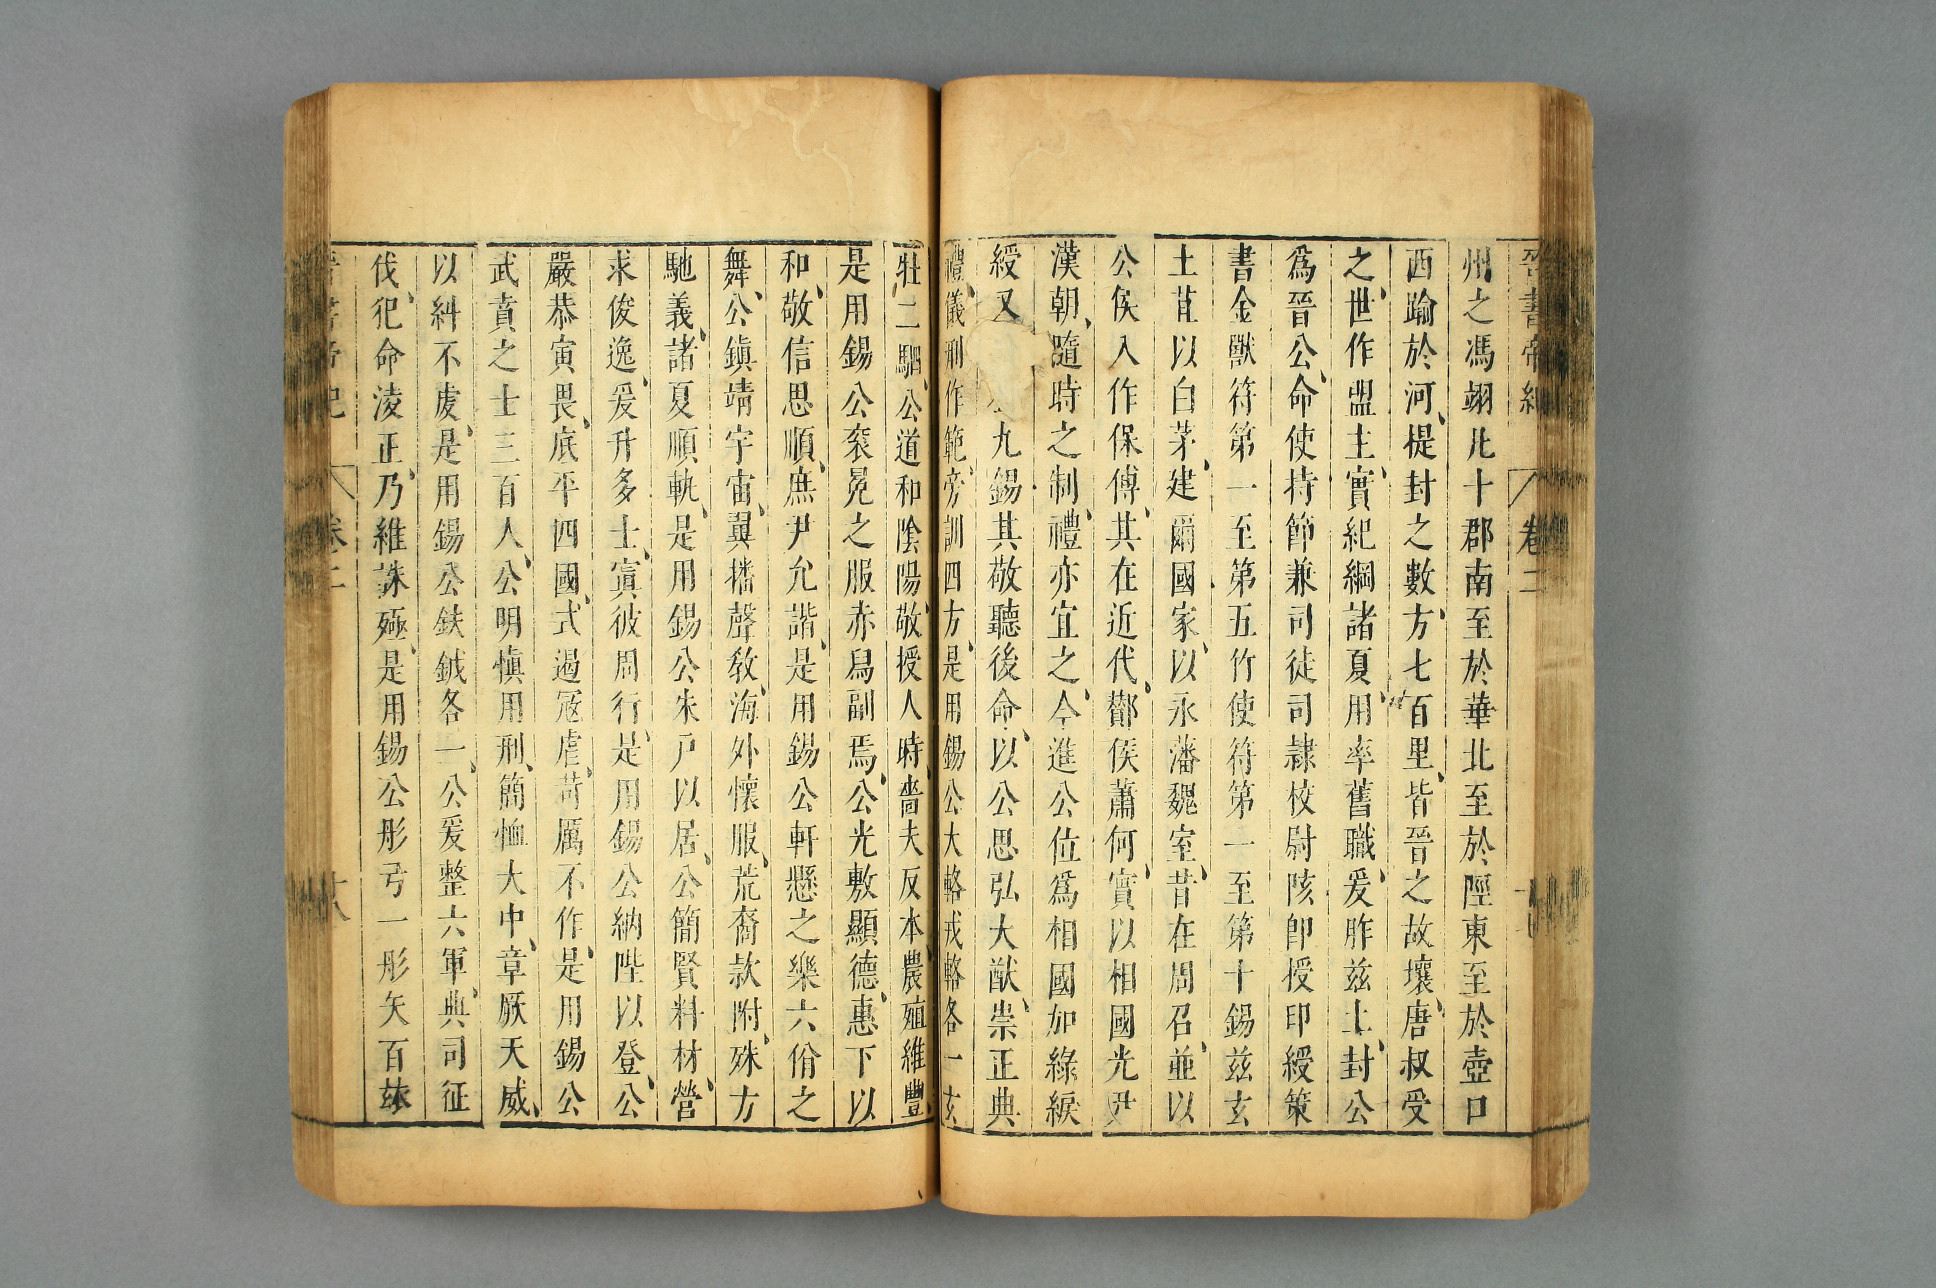 晉書帝紀 卷二
州之馮翊凡十郡南至於華北至於陘東至於壺口
西踰於河提封之數方七百里皆晉之故壤唐叔受
之世作盟主實紀綱諸夏用率舊職爰胙茲土封公
爲晉公命使持節兼司徒司隸校尉陔卽授印綬策
書金獸符第一至第五竹使符第一至第十錫茲玄
土苴以白茅建爾國家以永藩魏室昔在周召並以
公侯入作保傅其在近代酇侯蕭何實以相國光尹
漢朝隨時之制禮亦宜之今進公位爲相國加綠綟
綬又 九錫其敬聽後命以公思弘大猷崇正典
禮儀刑作範旁訓四方是用錫公大輅戎輅各一玄
牡二駟公道和陰陽敬授人時嗇夫反本農殖維豐
是用錫公袞冕之服赤舄副焉公光敷顯德惠下以
和敬信思順庶尹允諧是用錫公軒懸之樂六佾之
舞公鎭靖宇宙翼播聲教海外懷服荒裔款附殊方
馳義諸夏順軌是用錫公朱戶以居公簡賢料材營
求俊逸爰升多士寘彼周行是用錫公納陛以登公
嚴恭寅畏底平四國式遏寇虐苛厲不作是用錫公
武賁之士三百人公明愼用刑簡恤大中章厥天威
以糾不虔是用錫公鈇鉞各一公爰整六軍典司征
伐犯命淩正乃維誅殛是用錫公彤弓一彤矢百玈
晉書帝紀 卷二 十八